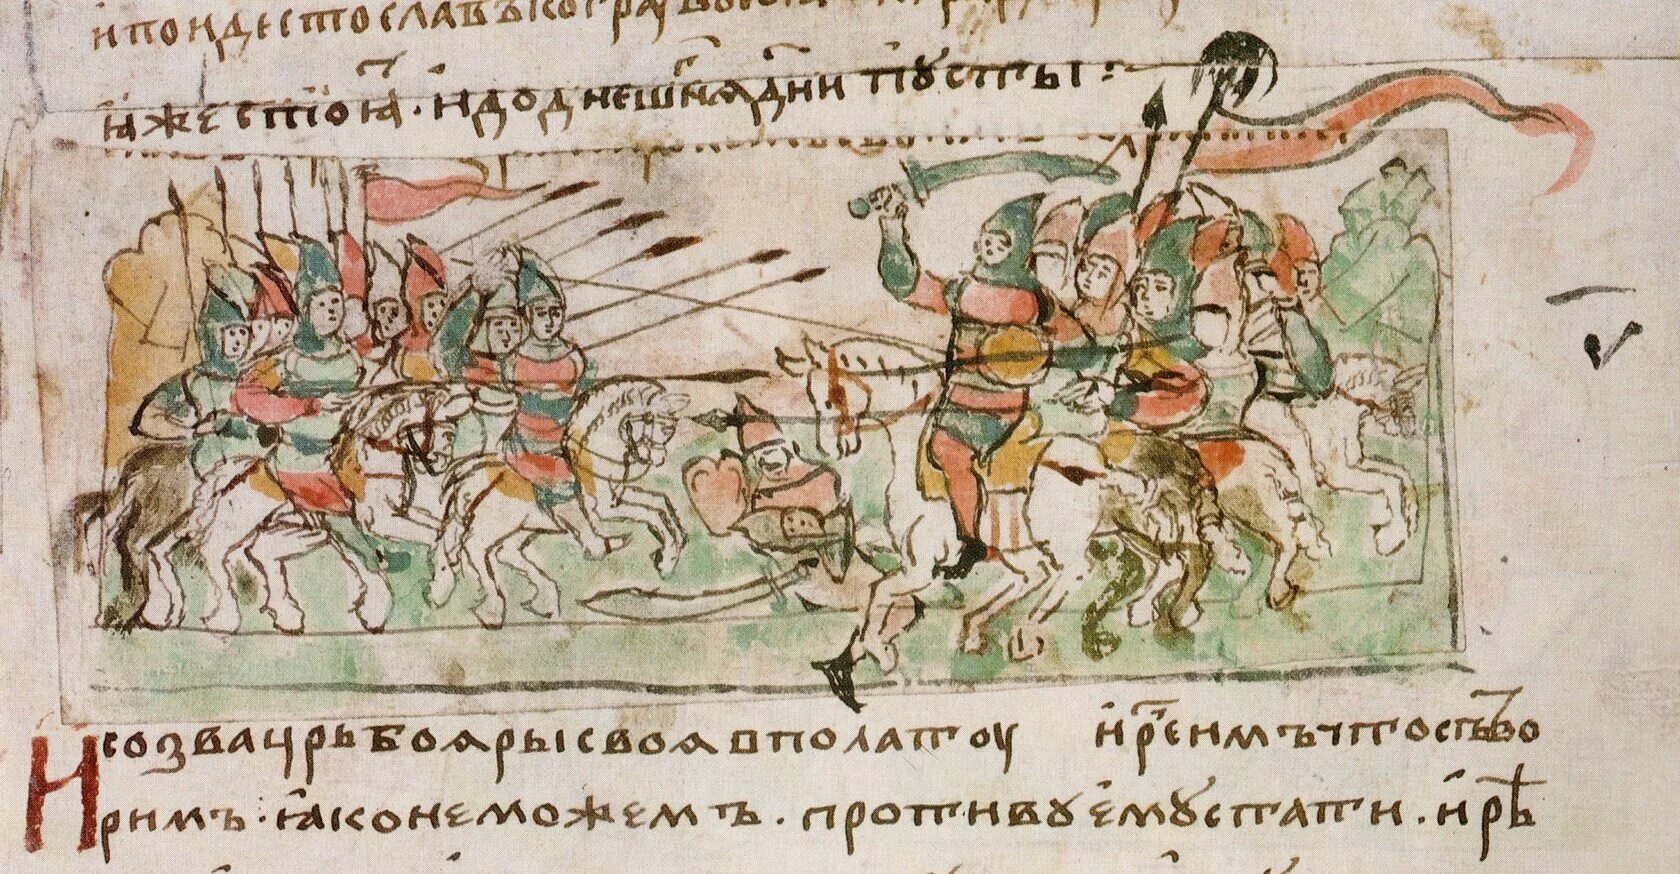 и поиде стославъ ко гра
ꙗже стоꙗ҇т . и до днешнѧ҇г дни пꙋсты :
И созва царь боѧры своѧ в полатоу и ре҇ имъ что сътво
римъ : ꙗко не можемъ . противꙋ емꙋ стати . и рѣ